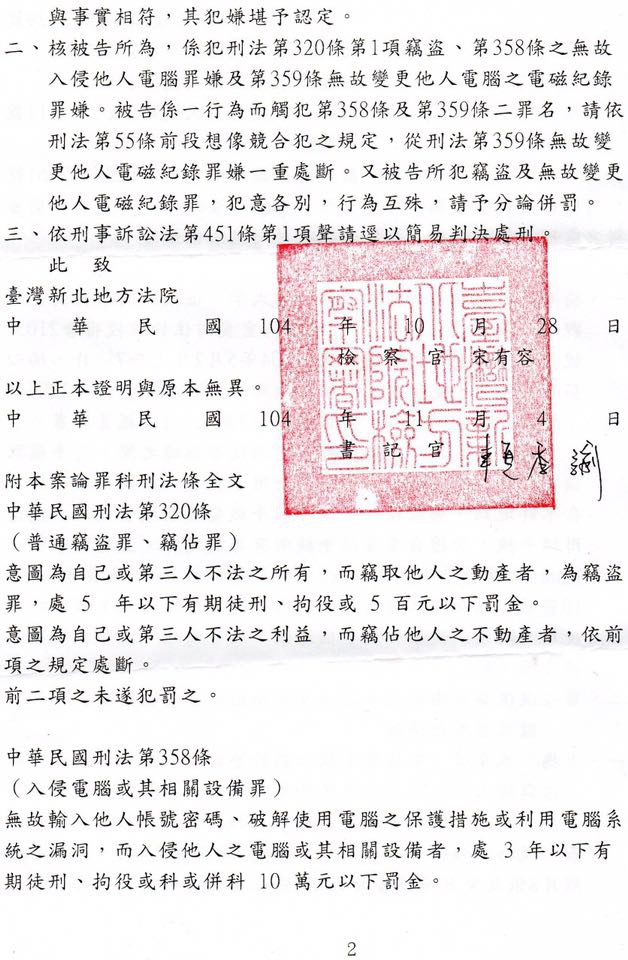 與事實相符，其犯嫌堪予認定。
二、核被告所為，係犯刑法第320條第1項竊盜、第358條之無故
入侵他人電腦罪嫌及第359條無故變更他人電腦之電磁紀錄
罪嫌。被告係一行為而觸犯第358條及第359條二罪名，請依
刑法第55條前段想像競合犯之規定，從刑法第359條無故變
更他人電磁紀錄罪嫌一重處斷。又被告所犯竊盜及無故變更
他人電磁紀錄罪，犯意各別，行為互殊，請予分論併罰。
三、依刑事訴訟法第451條第1項聲請逕以簡易判決處刑。
此 致
臺灣新北地方法院
中 華 民 國 104 年 10 月 28 日
檢 察 官 宋有容
以上正本證明與原本無異。
中 華 民 國 104 年 11 月 4 日
書 記 官
附本案論罪科刑法條全文
中華民國刑法第320條
（普通竊盜罪、竊佔罪）
意圖為自己或第三人不法之所有，而竊取他人之動產者，為竊盜
罪，處 5 年以下有期徒刑、拘役或 5 百元以下罰金。
意圖為自己或第三人不法之利益，而竊佔他人之不動產者，依前
項之規定處斷。
前二項之未遂犯罰之。
中華民國刑法第358條
（入侵電腦或其相關設備罪）
無故輸入他人帳號密碼、破解使用電腦之保護措施或利用電腦系
統之漏洞，而入侵他人之電腦或其相關設備者，處 3 年以下有
期徒刑、拘役或科或併科 10 萬元以下罰金。
2